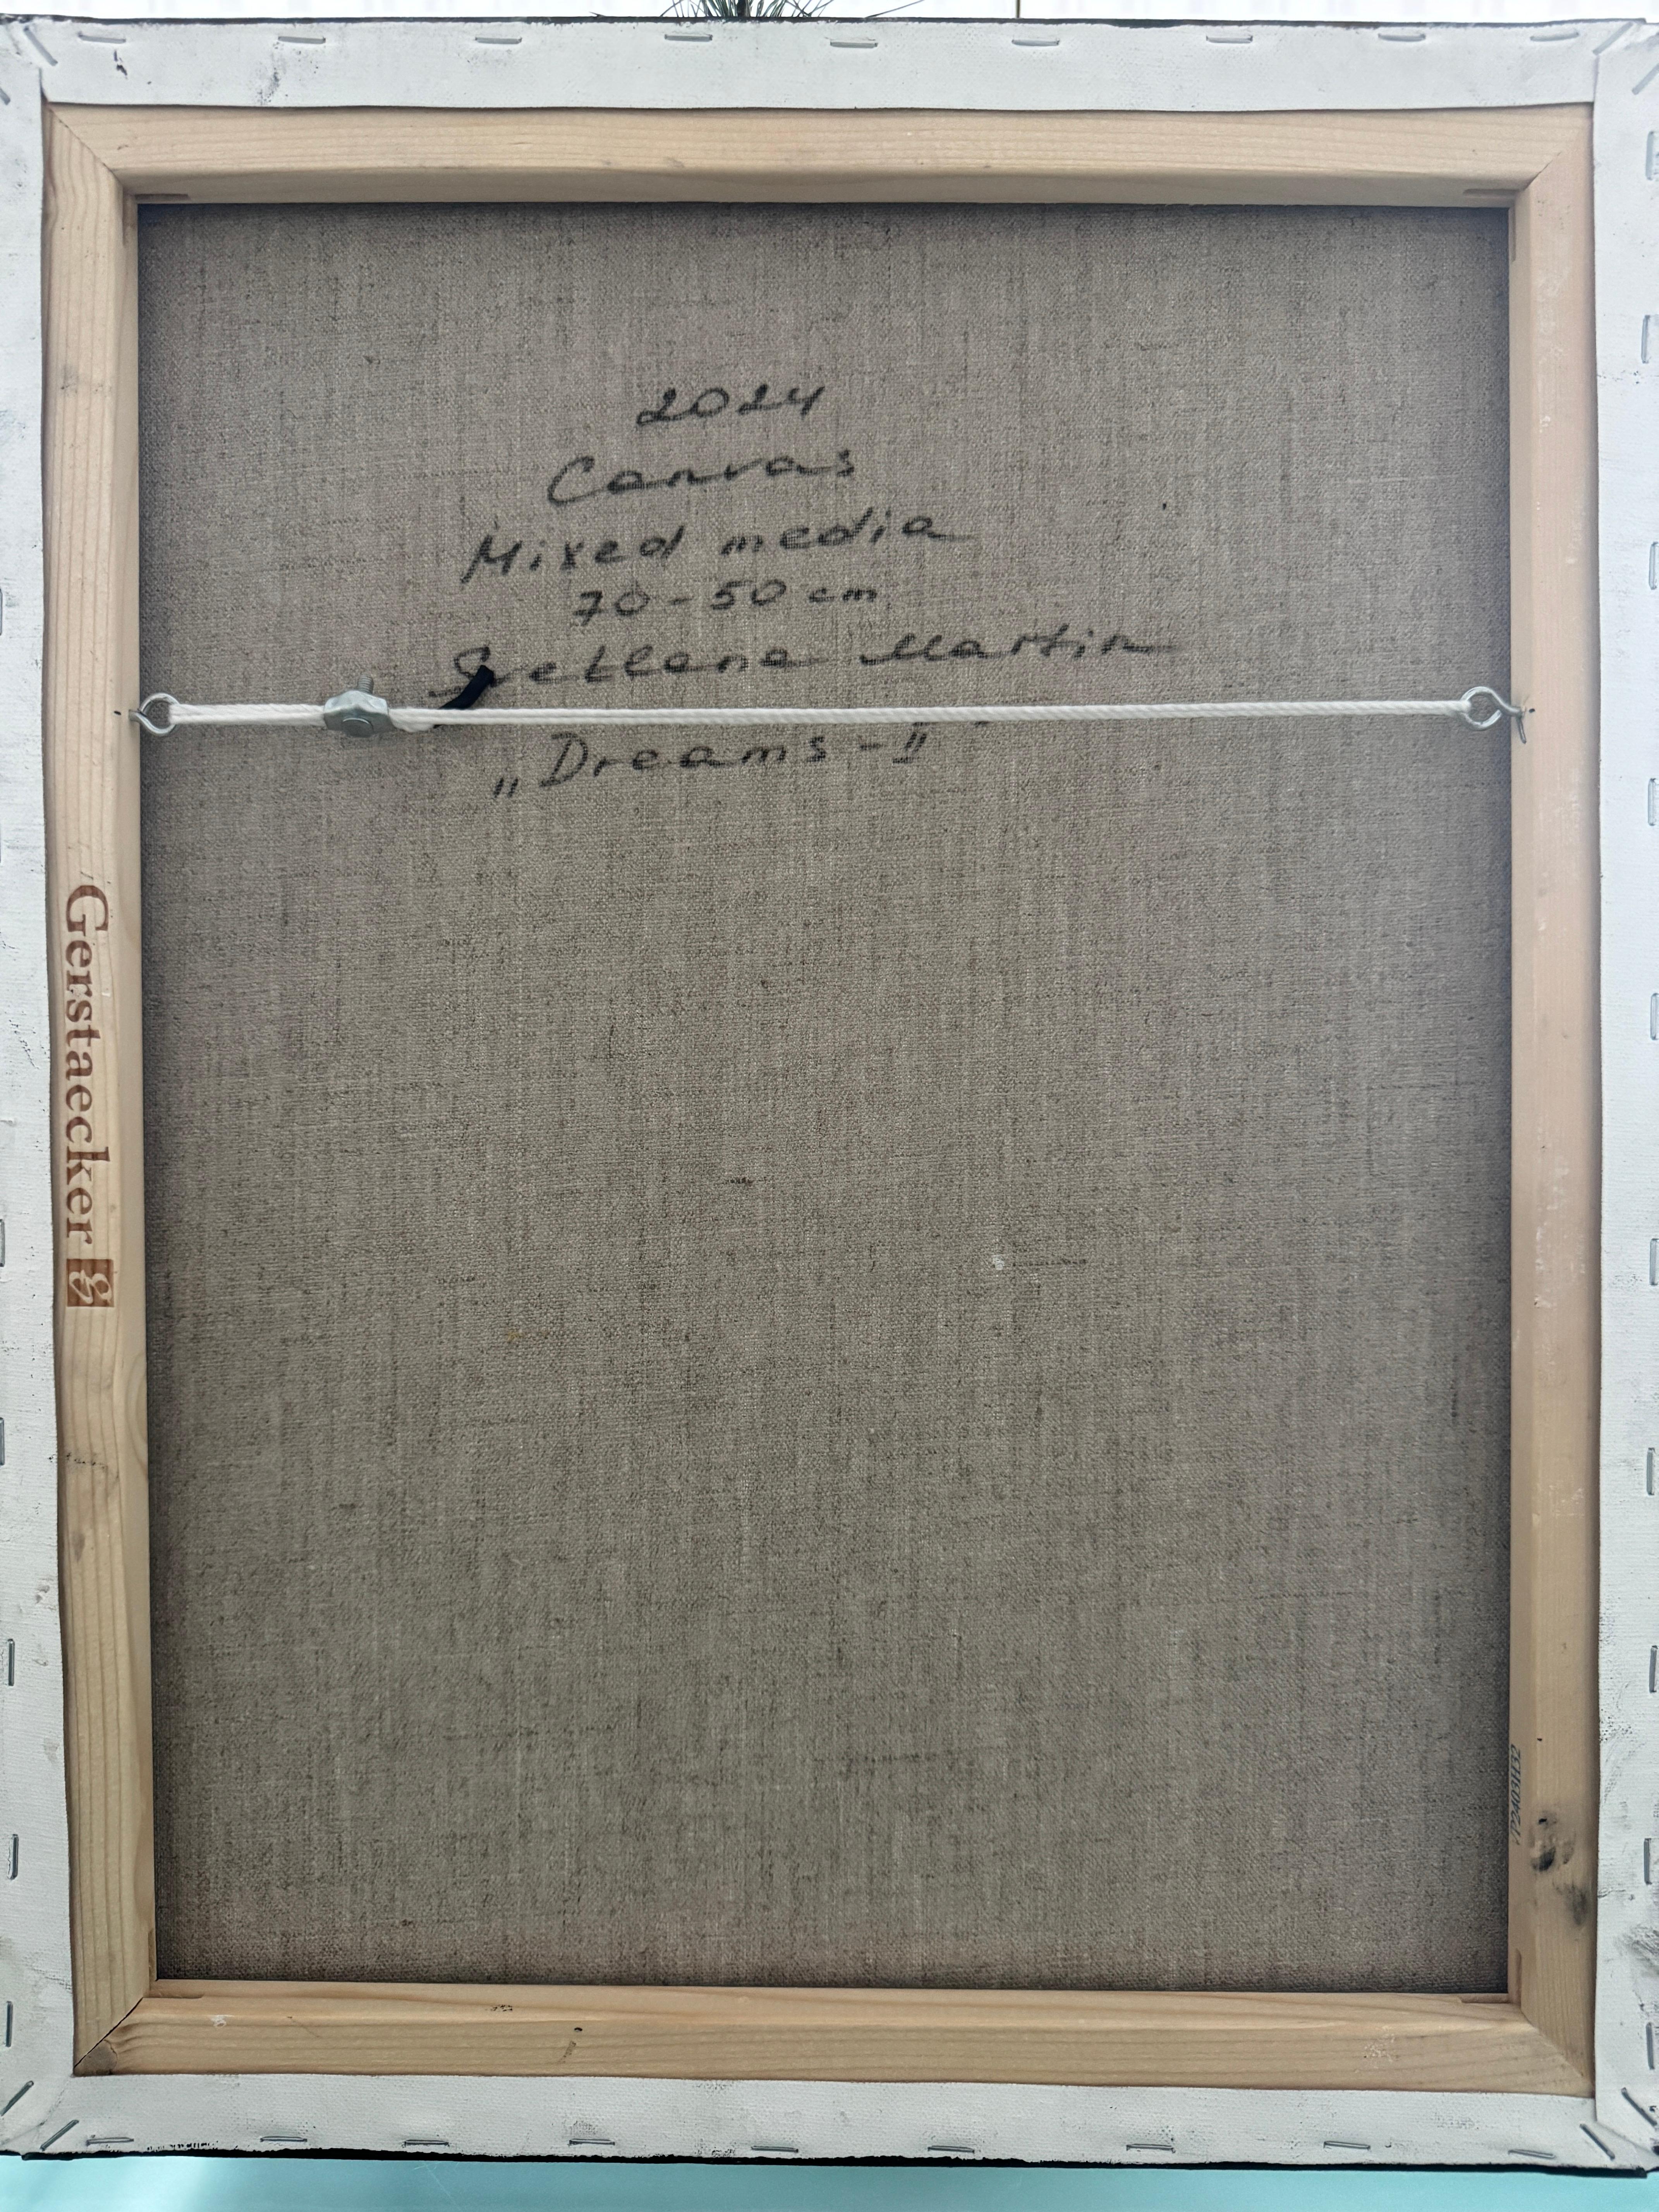 2024
Canvas
Mixed media
70-50 cm
Svetlana Martin
„Dreams-II
Gerstaecker